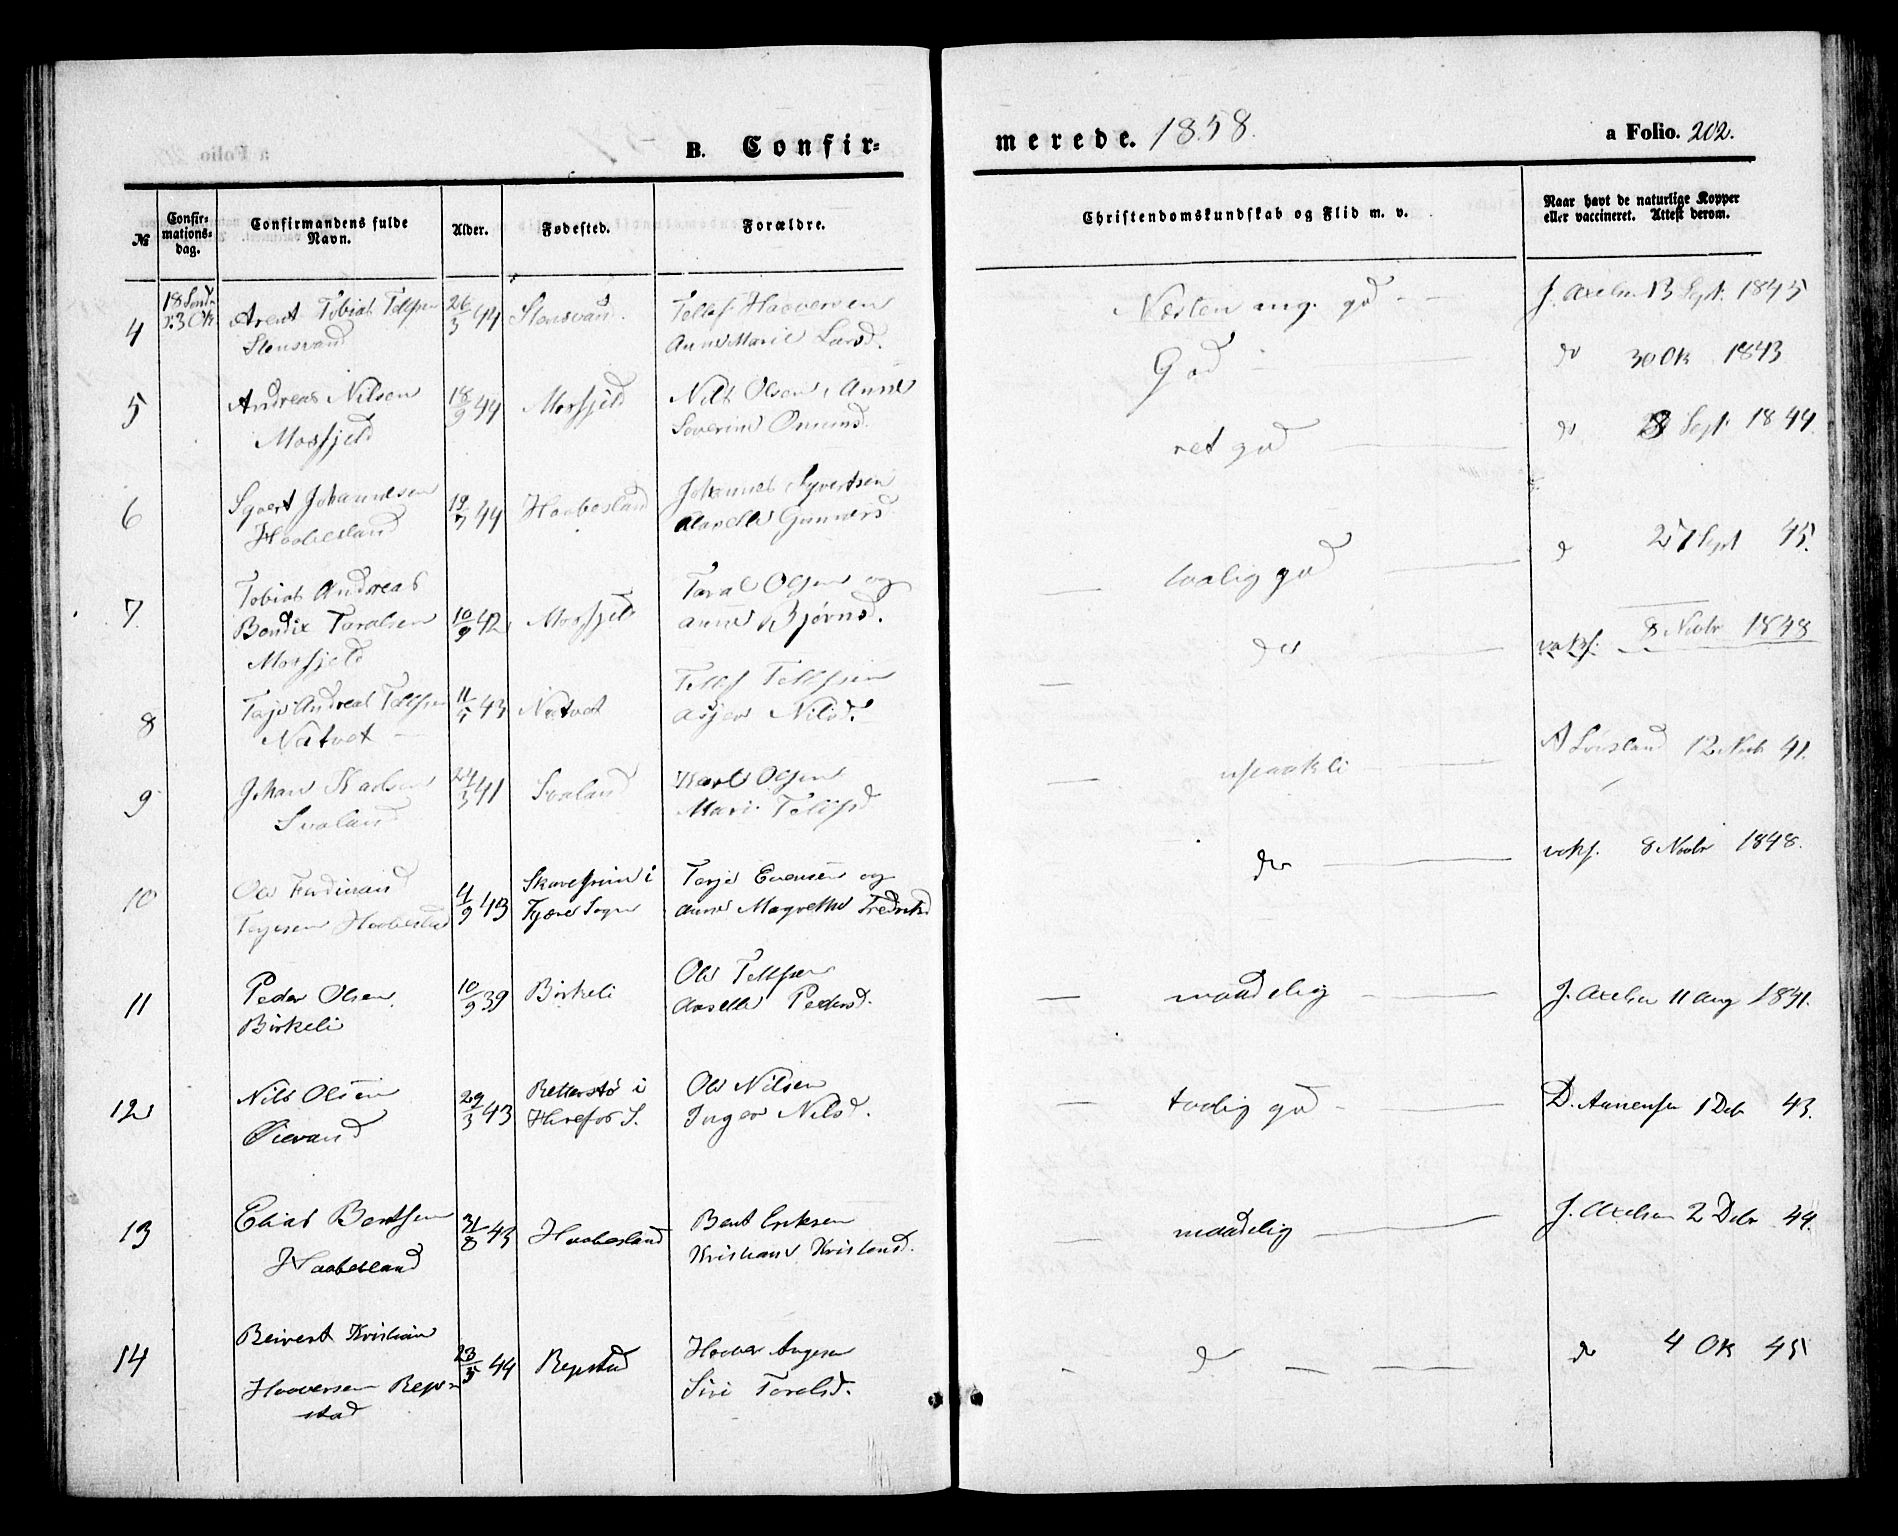 B. Confir-merede. 1858. a Folio. 202.
№ | Confir-mations-dag. | Confirmandens fulde Navn. | Alder. | Fødested. | Forældre. | Christendomskundskab og Flid m. v. | Naar havt de naturlige Kopper eller vaccineret. Attest derom.
4 | 18 Sønd. 3 Ok | Arent Tobias Tellfsen Stensvand | 26/3 44 | Stensvand. | Tellef Haaversen Anne Marie Larsd. | Næsten mg. god | J. Axelsen 13 Sept. 1845
5 | Andreas Nilsen Mosfjeld | 18/9 44 | Mosfjeld | Nils Olsen, Anne Severine Omunds. | God | do 30 Ok 1843
6 | Syvert Johannesen Haabesland | 19/7 44 | Haabesland | Johannes Syvertsen Aaselle Gunners | ret god | do 8 Sept. 1844
7 | Tobias Andreas Bendix Taralsen Mosfjeld | 10/9 42 | Mosfjeld | Taral Olsen og Anne Bjørnsd. | taalig god | d 27 Sept 45.
8 | Terje Andreas Tellfsen Natvet | 11/5 43 | Natvet | Tellef Tellfsen Asjer Nilsd. | do | vaks. 8 Novbr 1848
9 | Johan Karlsen Svaland | 24/3 41 | Svaland | Karl Olsen Mari Tellfsd | upaakl. | A Lousland 12 Novb 41.
10 | Ole Ferdinand Terjesen Haabesland | 4/9 43 | i Fjære Sogn | Terje Evensen og Anne Magrethe Fredriksd | do | vaks. 8 Novbr 1848.
11 | Peder Olsen Birkeli | 10/9 39 | Birkeli | Ole Tellfsen Aaselle Pedersd. | maadelig | J. Axelsen 11 Aug 1841.
12 | Nils Olsen Øievand | 29/3 43 | i Herefos S. | Ole Nilsen Inger Nilsd. | taalig god | D. Aanensen 1 Debr 43.
13 | Elias Bentsen Haabesland | 31/8 43 | Haabesland | Bent Eriksen Kristiane Kristensd. | maadelig | J. Axelsen 2 Debr 44.
14 | Reinert Kristian Haaversen Repstad | 23/5 44 | Repstad | Haaver Aagesen Siri Taralsd. | d | do 4 Ok 45